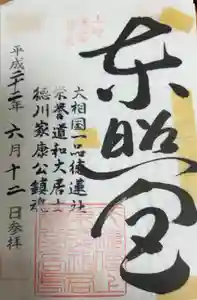 東照宮
大相国一品徳蓮社
崇誉道和大居士
徳川家康公鎮魂
平成二十二年六月十二日参拝